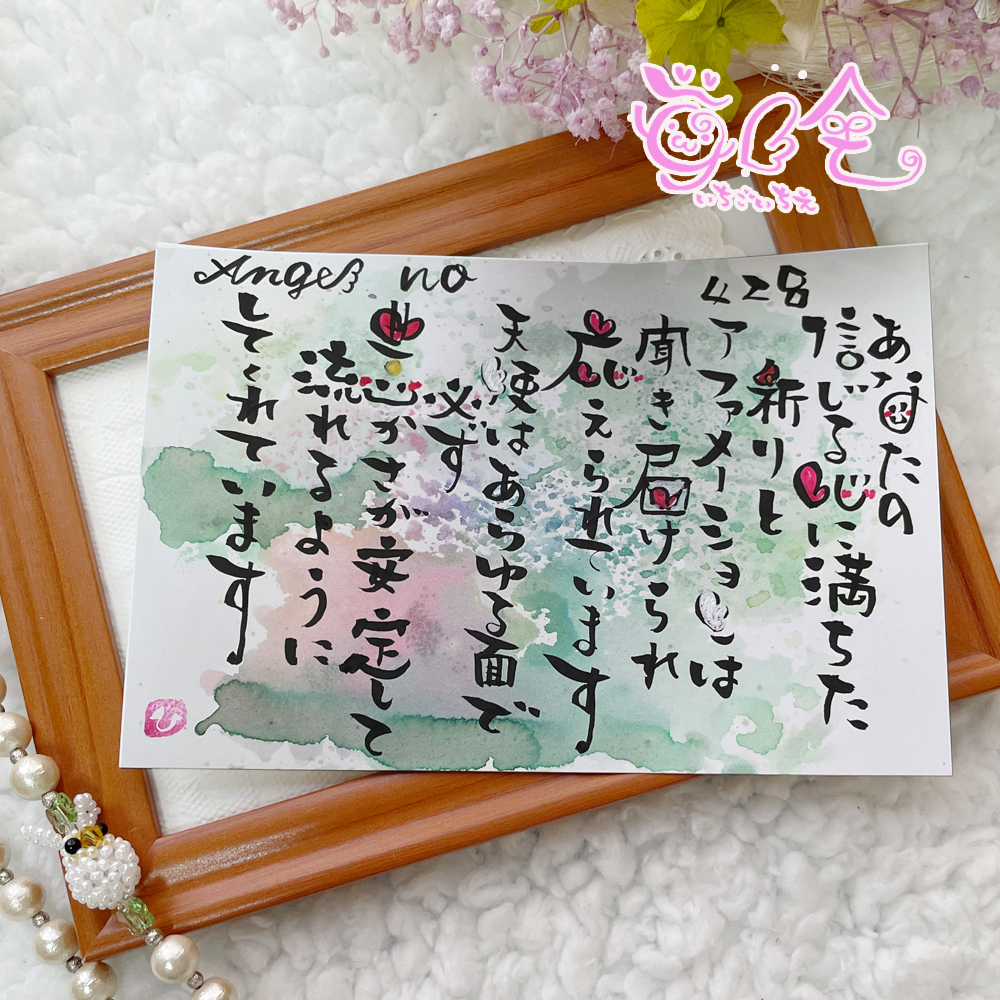 いちごいちえ
Angel no 428
あなたの
信じる心に満ちた
祈りと
アファメーションは
聞き届けられ
応えられています
天使はあらゆる面で
必ず
豊かさが安定して
流れるように
してくれています